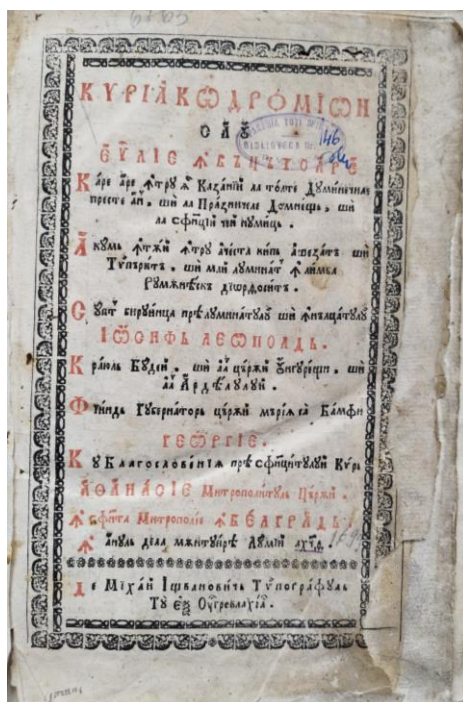 КѶРІА҆КѠДРО́МІѠН
САꙊ҆
Є҆Ѵ҆ЛІЄ Ꙟ҆ВЪ́НЪТОАРЄ
Каре а҆ре ꙟ҆трꙋ ꙗ҆ Каза́нїй ла то́ате Дꙋми́нечиле
престе а҆н. ши ла Пра́зничеле Домнещь, ши
ла сфн҃цїй чей нꙋмиць.
А҆кꙋмь ꙟ҆тѫй ꙟ҆трꙋ ачеста кипь ашезатъ ши
Тѷпъритъ. ши май лꙋминат ꙟ҆ лимба
Рꙋмѫнѣскъ дїѡрѳоситъ.
Сꙋпт бирꙋи́нца прѣлꙋмина́тꙋлꙋ ши ꙟ҆нълца́тꙋлꙋ
ІѠ҆СИФЬ ЛЄѠПОЛДЬ.
Кра́юль Бꙋдей. ши ал҆ църїй Оу҆нгꙋрещи. ши
ал҆ А҆рдѣлꙋлꙋй.
Фїи́ндь Гꙋберна́торь църїй мърїѧ са Ба́мфи
ГЄѠ҆РГІЄ.
Кꙋ Благослове́нїѧ прѣ сфн҃ци́тꙋлꙋй Кѷрь
АѲАНАСІЄ Митрополи́тꙋль Църїй.
Ꙟ҆ сфн҃та Митрополїе Ꙟ҆ БѢЛГРАДЬ.
Ꙟ҆ а҆нꙋль дела мѫнтꙋи́рѣ Лꙋмїй ах҃чѳ.
Де Міха́й І҆шва́новичь Тѷпогра́фꙋль
Тꙋ е҆ѯ Оу҆гровлахі́ас.